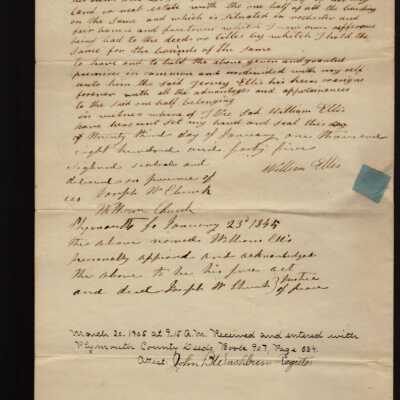 land or real estate with the one half of all the
on the same and which is situated in rochester and
being had to the deeds or titles by which I hold the
same for the bounds of the same
to have and to hold the above given and granted
premises in common and undivided with my self
unto him the said Ellis his heirs
forever with all the advantages and appurtenances
to the said one half belonging
in witness where of I the sad William Ellis
have here unt set my hand and seal this day
of twenty third day of January one thousand
eight hundred and forty five
William Ellis
sighned sealed and
deliverd in presence of
us Joseph W Church
Church
Plymouth ss January 23d 1845
this above named William Ellis
personally appeard and acknowledged
the above to be his free act
and deed Joseph W Church } Justice
of peace
March 20. 1905 at 9.15 A.M. Received and entered with
Plymouth County Deeds, Book 907, Page 554.
Attest. John B Washburn Register